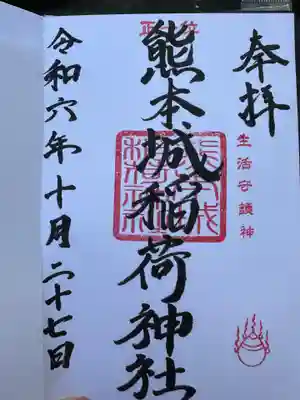 奉拝
生活守護神
正一位
熊本城稲荷神社
令和六年十月二十七日